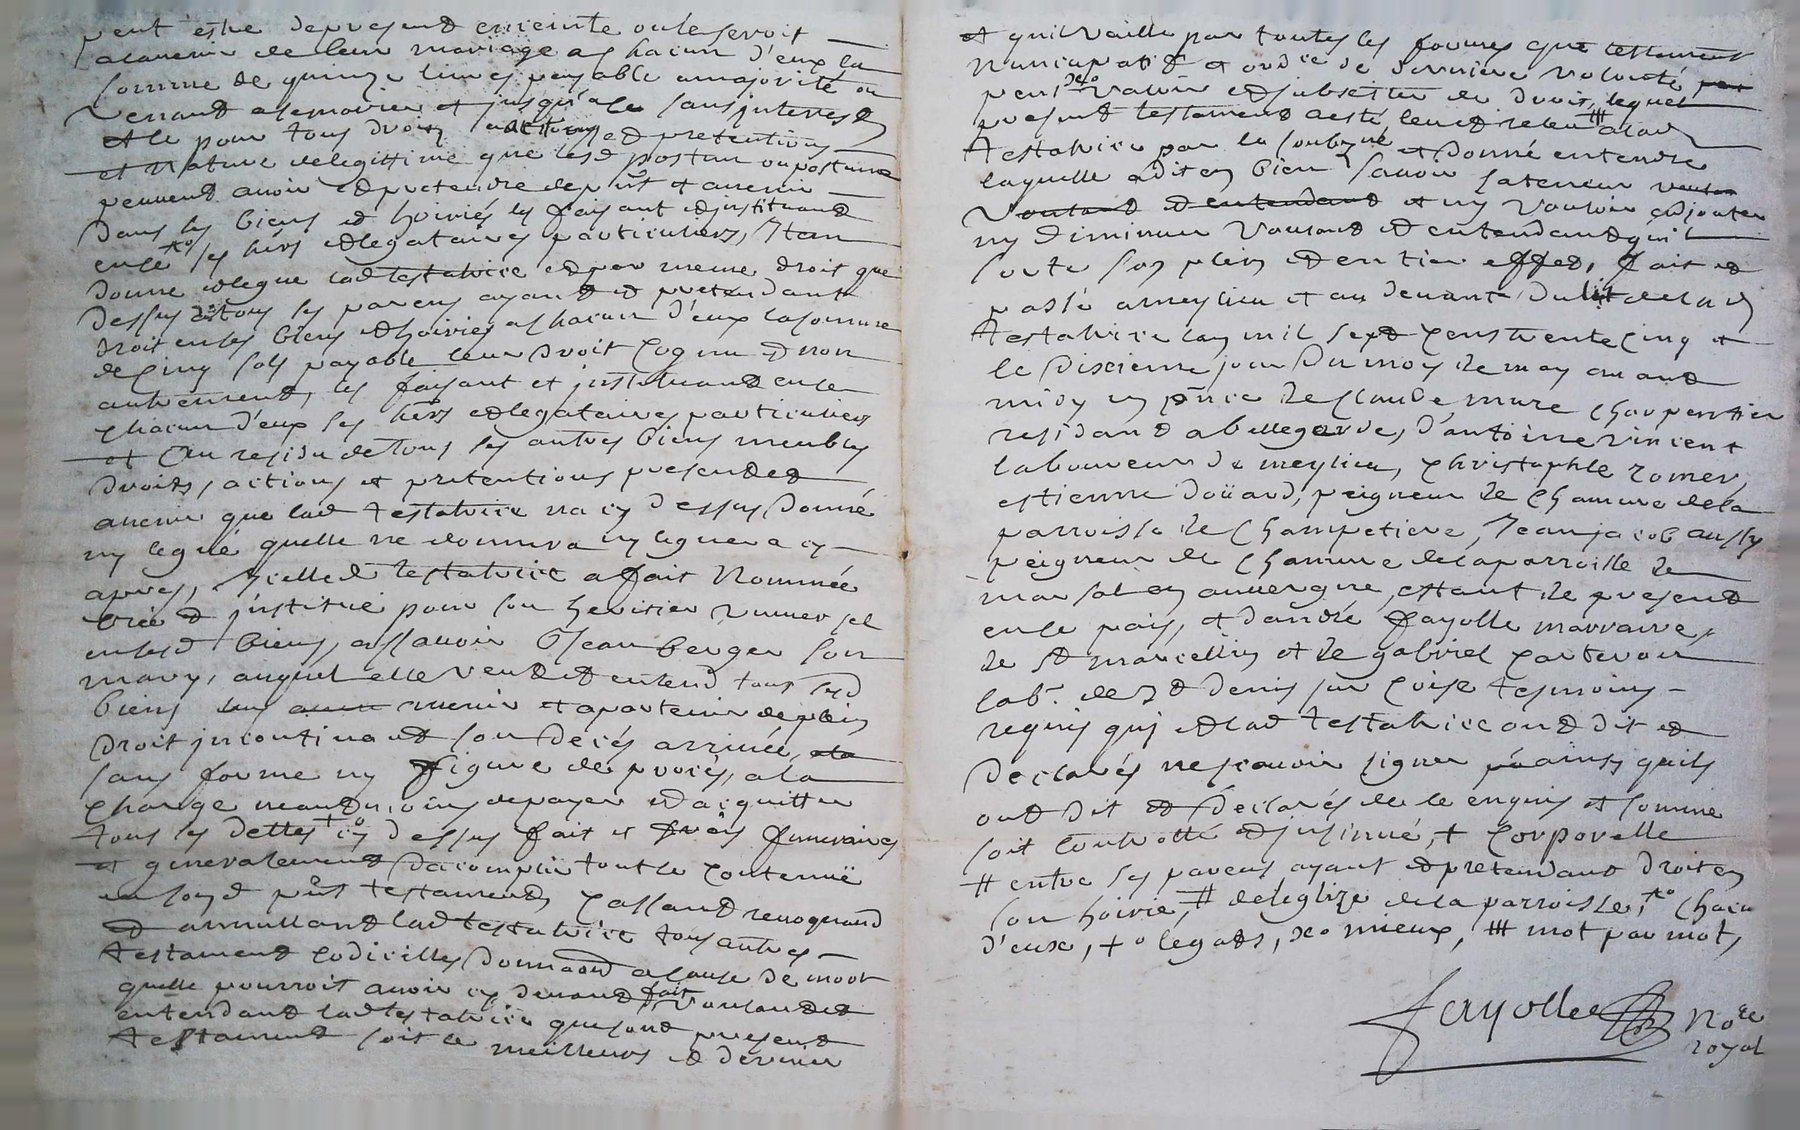 peut estre de present enceinte ou le seroit
a ladvenir de leur mariage a chacun d'eux la
somme de quinze livres payable a majorité ou
venant a se marier et jusqu'a ce sans interrest
et ce pour tous droits actions et pretentions
et nature de legittime que lesd postum ou postume
peuvent avoir et pretendre de pnt et avenir
dans les biens et hoiriés les faisant et instituant
en ce +o ses hers et legataires particuliers, Item
donne et legue lad testatrice et par meme droit que
dessus a tous ses parens ayant et pretendant
droit en ses biens et hoiries a chacun d'eux la somme
de cinq sols payable leur droit cognu et non
autrement, les faisant et instituant en ce
chacun d'eux ses hers et legataires particuliers
et Au residu de tous ses autres biens meubles
droits, actions et pretentions presend et
avenir que lad testatrice na cy dessus donné
ny legué quelle ne donnera ny leguera cy
apres, Icelle d testatrice a fait nommée
crée et institué pour son heritier universel
en sesd biens, assavoir Jean berger son
mary, auquel elle veut et entend tous sesd
biens venir et apartenir de plein
droit incontinent son decés arrivée,
sans forme ny figure de procés, a la
charge neandmoins de payer et acquitter
tous les dettes + cy dessus fait et frais funeraires
et generalement dacomplir tout le contenuë
en sond pnt testament, cassant revoquand
et annullant lad testatrice tous autres
testament codicilles donnaond a cause de mort
quelle pourroit avoir cy devant fait, voulant et
entendant lad testatrice que sond present
testament soit le meilleurs et dernier
et quil vaille par toutes les formes que testament
nuncupatif et ordre de derniere volonté
peut xo valoir et subsetter de droit, lequel
present testament a esté leu et releu # a lad
testatrice par le soubzné et donné entendre
laquelle a dit en bien savoir la teneur
voulant et entendant et ny vouloir adjouter
ny diminuer voulant et entendant quil
sorte son plein et entier effet, fait et
passé a meylieu et au devant du lit de lad
testatrice lan mil sept cens trente cinq et
le dixieme jour du mois de may avant
midy en pnce de Claude mure charpentier
residant a bellegarde, d'antoine vincent
laboureur de meylieu, christophle romer,
estienne doüard, peigneur de chamvre de la
parroisse de champetiere, Jean jacob aussy
peigneur de chamvre de la parroisse de
marsal en auvergne, estant de present
en ce pais, et dandré fayolle
de st marcellin et de gabriel
labr de st denis sur coise tesmoins
requis qui et lad testatrice ont dit et
declarés ne scavoir signer ainsy quils
ont dit et declarés de ce enquis et sommé
soit controllé et insinué, + corporelle
# entre ses parens ayant et pretendant droit en
son hoirie, # de leglize de la parroisse, +o chacu
d'eux, +o légats, xo mieux, # mot par mots
fayolle Nore
royal